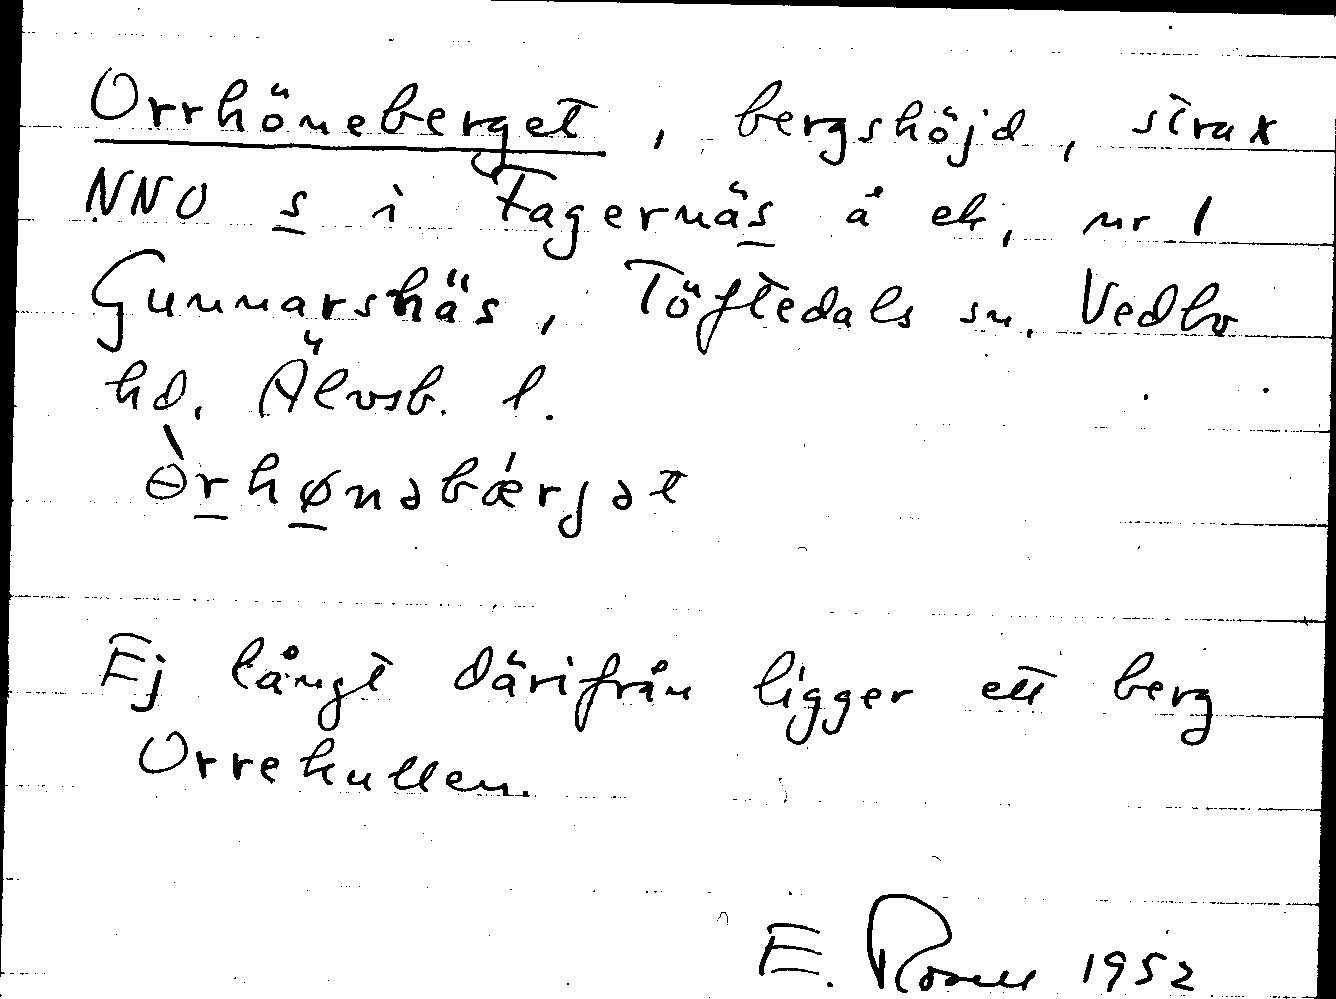 Orrhöneberget, bergshöjd, strax
NNO s i Fagernäs å ek, nr 1
Gunnarsnäs, Töftedals sn. Vedbo
hd. Älvsb. l.
ɵ̀rhønəbǽrjət
Ej långt därifrån ligger ett berg
Orrekullen.
E. 1952